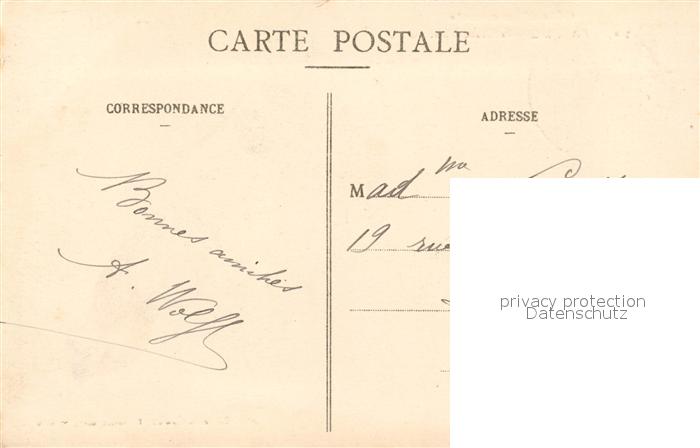 CARTE POSTALE
CORRESPONDANCE
ADRESSE
Bonnes amitiés
A. Wolff
Madme
19 rue
privacy protection
Datenschutz